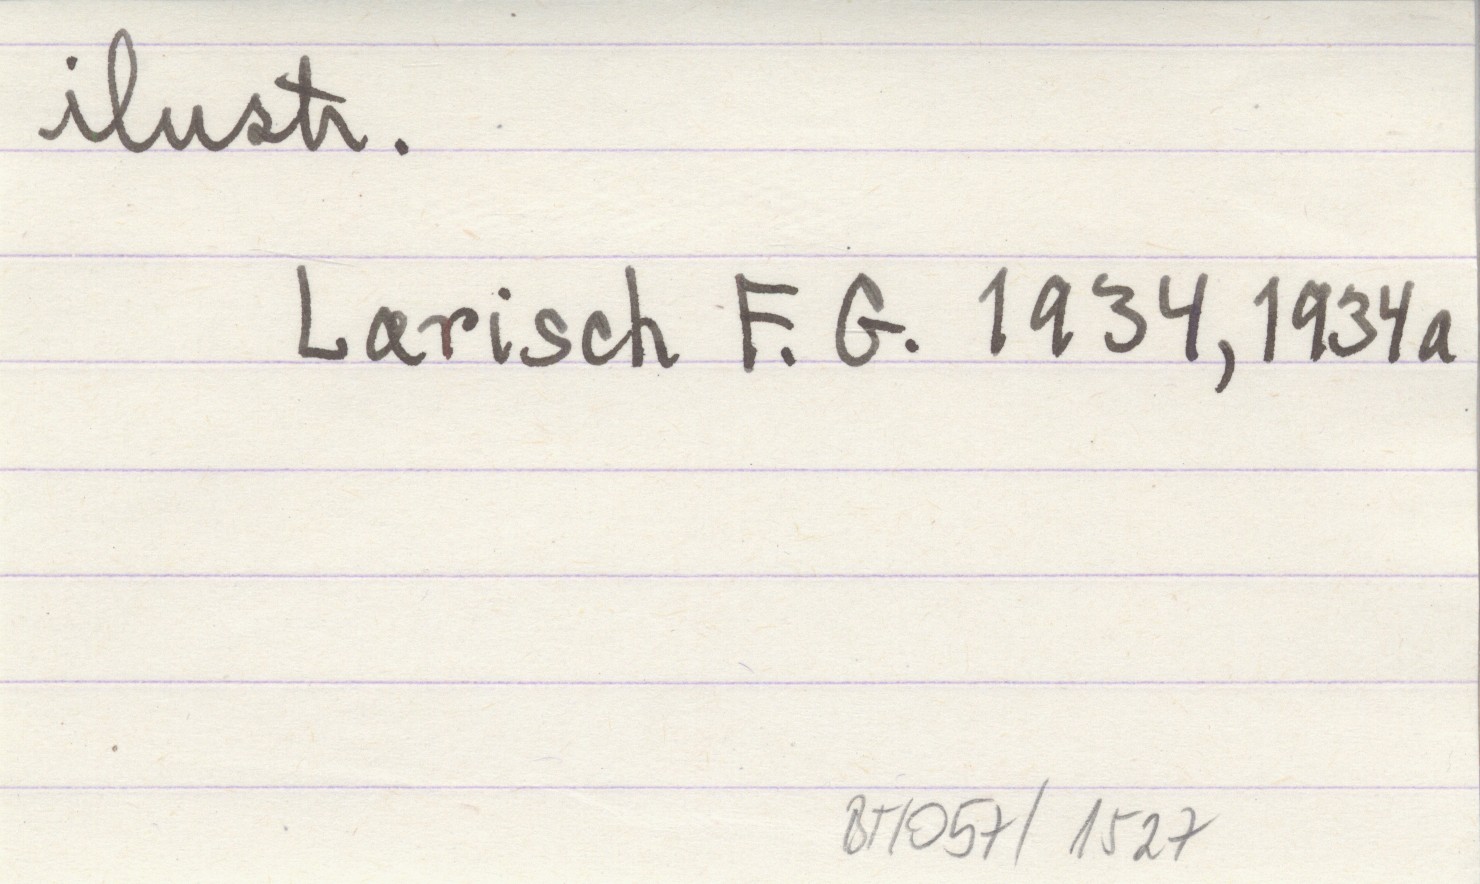 ilustr.
Larisch F. G. 1934, 1934a
BT/057/1527